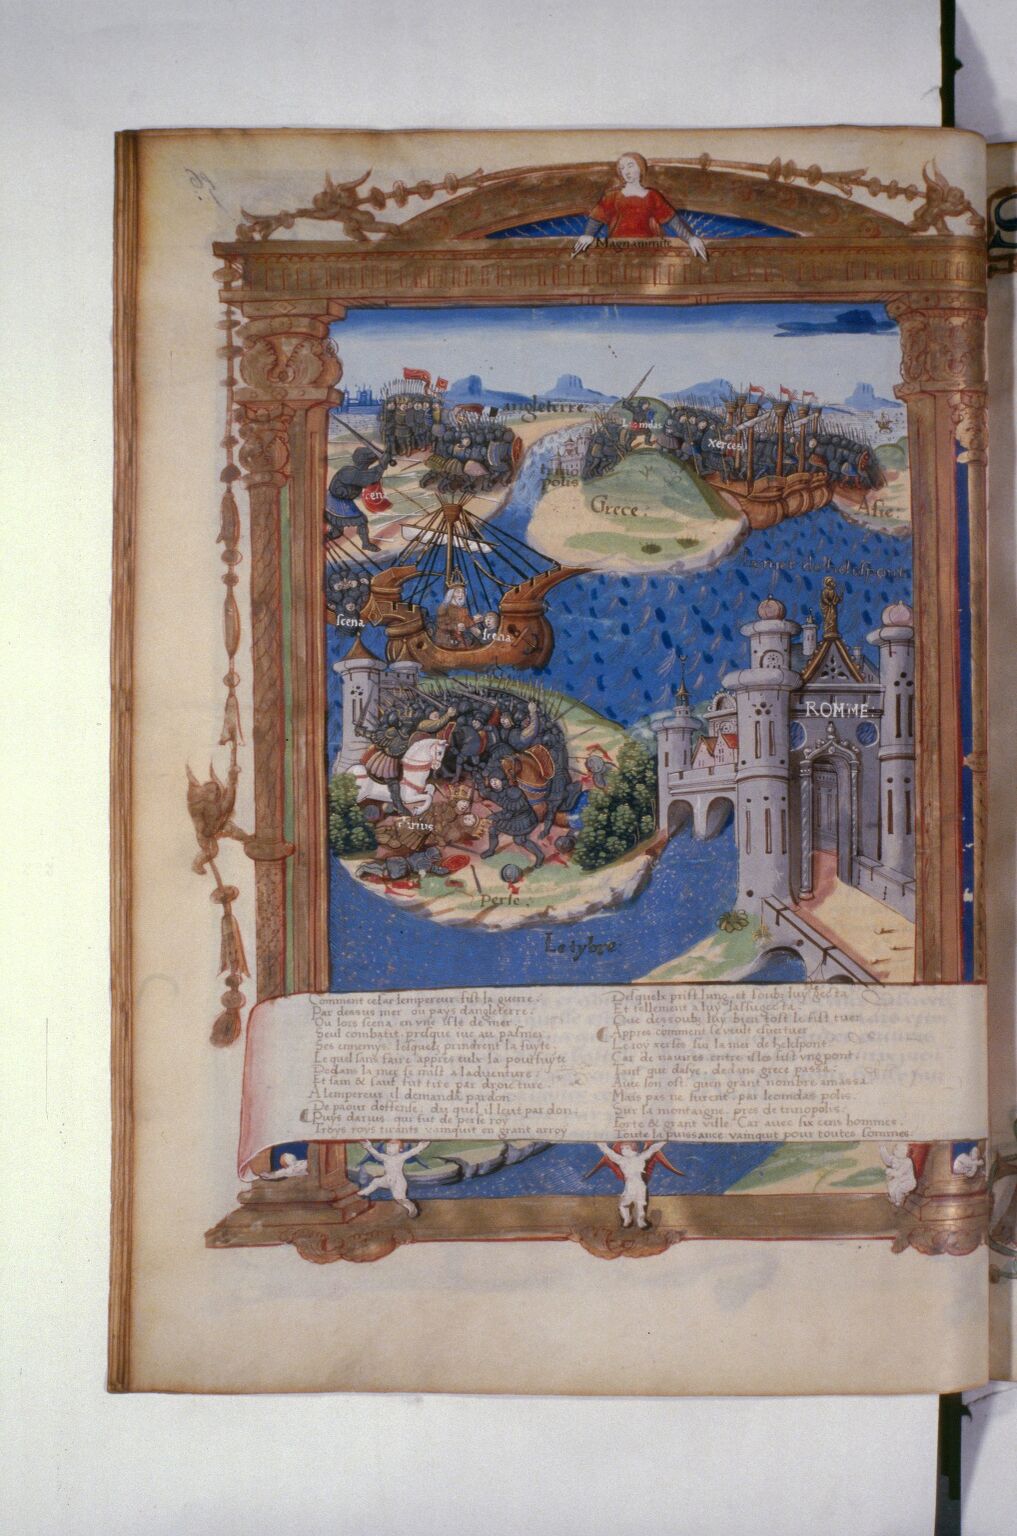 Magnanimite
angleterre
Leonidas
Xerces
scena
polis
Grece
Asie
la mer de helespont
scena
scena
ROMME
Darius
perse
Le tybre
Comment cesar lempereur fist la guerre
Par dessus mer ou pays dangleterre
Ou lors scena en vne isle de mer
Seul combatit presque nue au palmer
Ses ennemys lesquelz prindrent la fuyte
Lequel sans faire appres eulx la poursuyte
Dedans la mer se mist a ladventure
Et sain & sauf fut tire par droicture
A lempereur il demanda pardon
De paour doffense du quel il leut par don
Puys darius qui fut de perse roy
Troys roys tirants vainquit en grant arroy
Desquelz prist lung et soubz luy
Et tellement a luy
Que dessoubz luy bien tost le fist tuer
Appres comment se veult esuertuer
Le roy xerses sur la mer de helespont
Car de nauires entre isles fist vng pont
Tant que dasye dedans grece passa
Auec son ost quen grant nombre amassa
Mais pas ne furent par leonidas polis
Sur la montaigne pres de trinopolis
Forte & grant ville Car auec six cens hommes
Toute la puissance vainquit pour toutes sommes